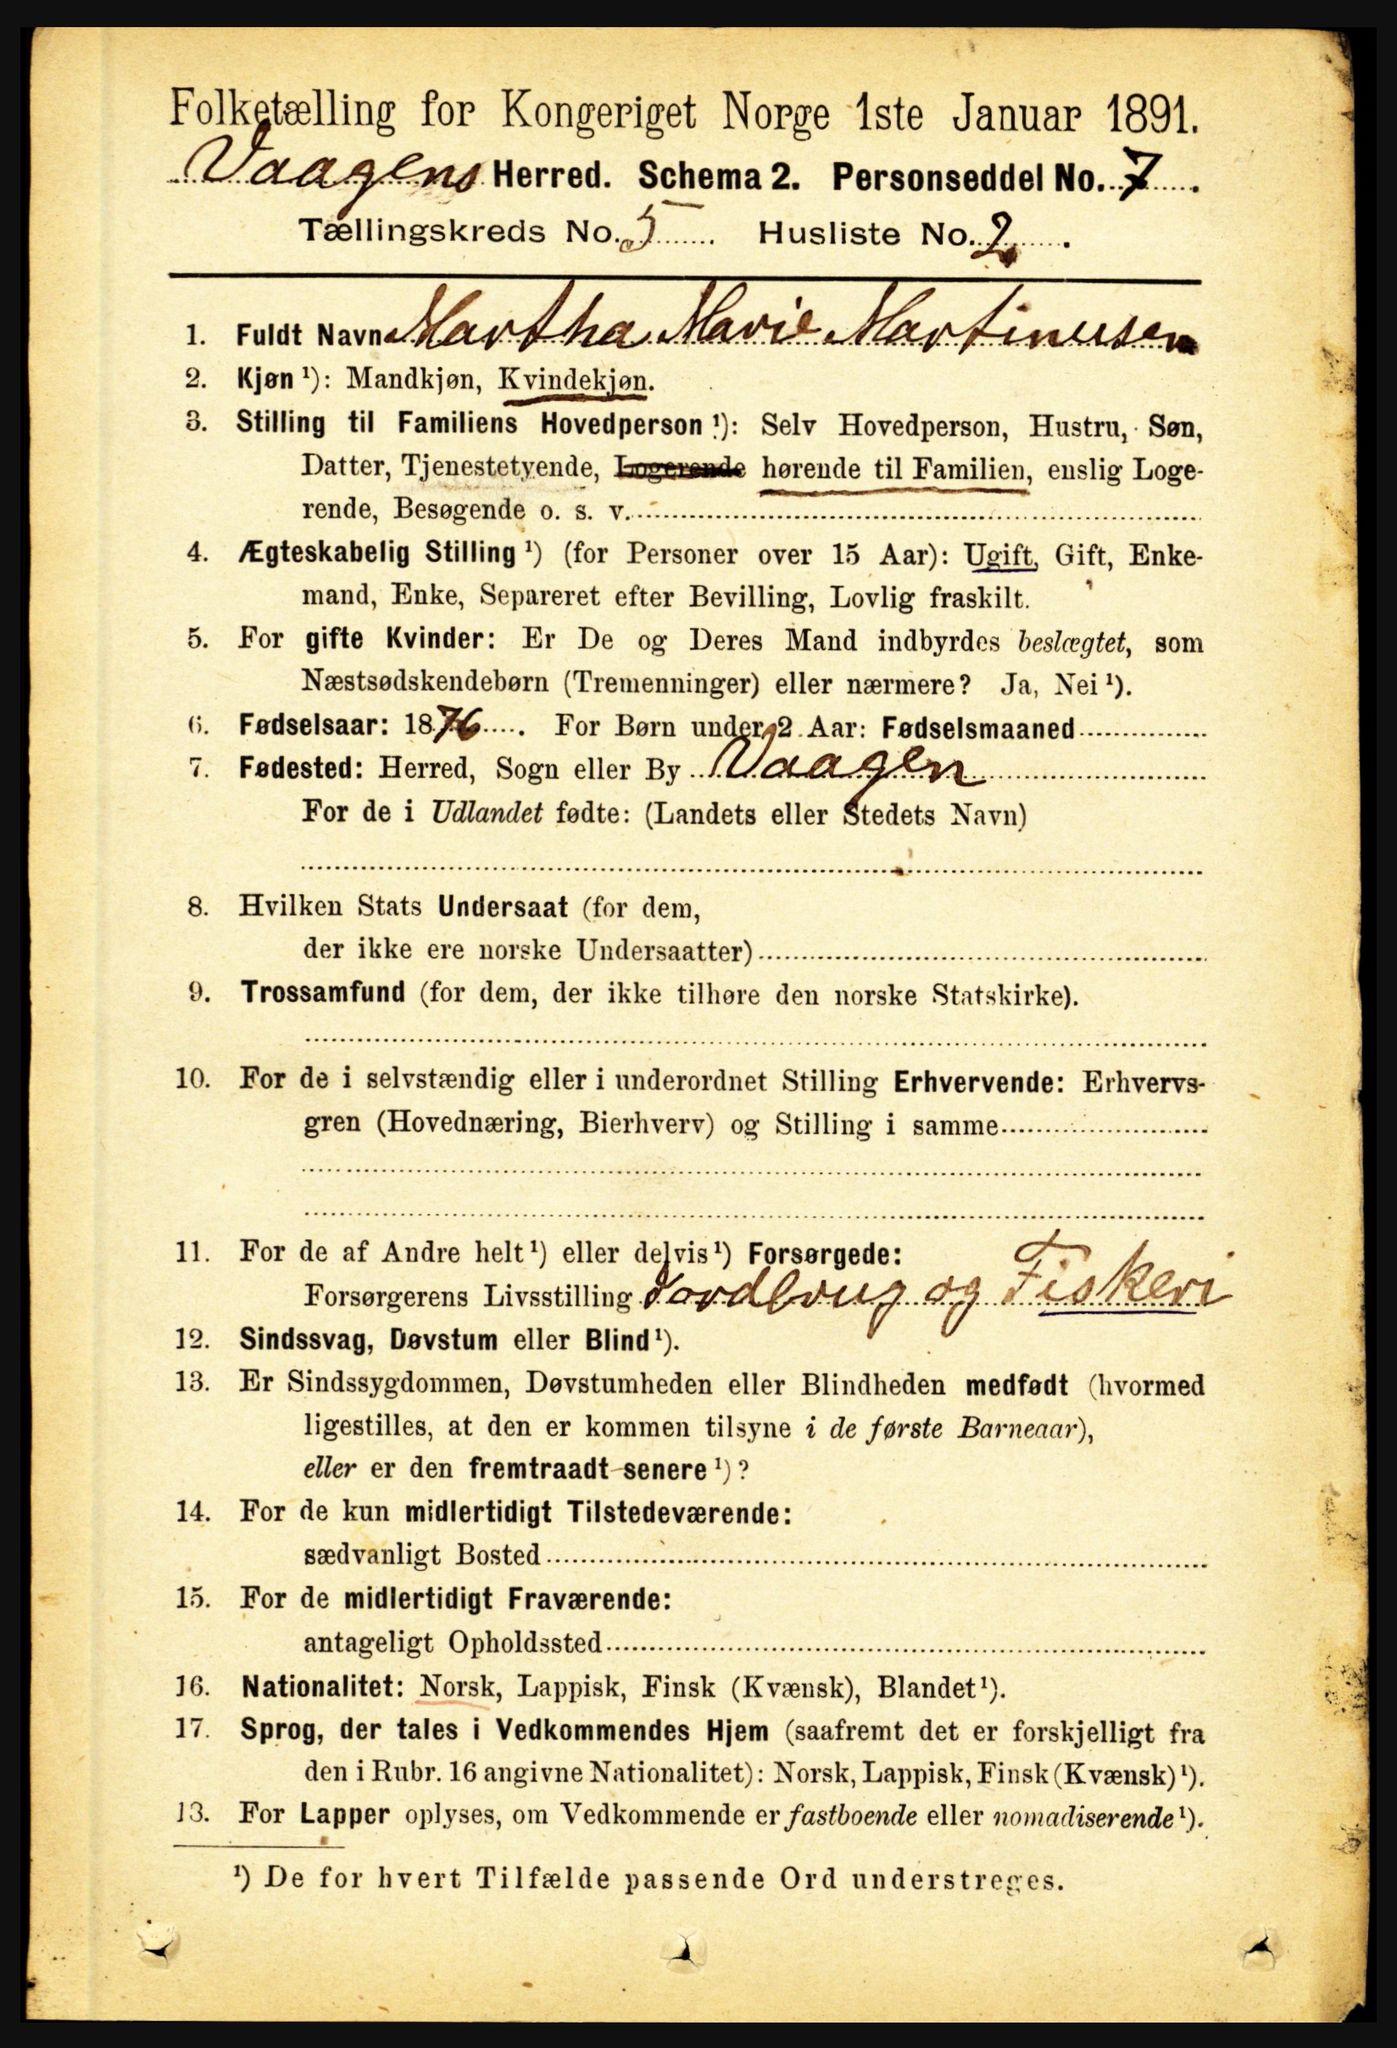 Folketælling for Kongeriget Norge 1ste Januar 1891.
Vaagens Herred. Schema 2. Personseddel No. 7.
Tællingskreds No. 5. Husliste No. 2.
1. Fuldt Navn Martha Marie Martinusen
2. Kjøn ¹): Mandkjøn, Kvindekjøn.
3. Stilling til Familiens Hovedperson ¹): Selv Hovedperson, Hustru, Søn,
Datter, Tjenestetyende, Logerende hørende til Familien, enslig Loge-
rende, Besøgende o. s. v.
4. Ægteskabelig Stilling ¹) (for Personer over 15 Aar): Ugift, Gift, Enke-
mand, Enke, Separeret efter Bevilling, Lovlig fraskilt.
5. For gifte Kvinder: Er De og Deres Mand indbyrdes beslægtet, som
Næstsødskendebørn (Tremenninger) eller nærmere? Ja, Nei ¹).
6. Fødselsaar: 1876. For Børn under 2 Aar: Fødselsmaaned
7. Fødested: Herred, Sogn eller By Vaagen
For de i Udlandet fødte: (Landets eller Stedets Navn)
8. Hvilken Stats Undersaat (for dem,
der ikke ere norske Undersaatter)
9. Trossamfund (for dem, der ikke tilhøre den norske Statskirke).
10. For de i selvstændig eller i underordnet Stilling Erhvervende: Erhvervs-
gren (Hovednæring, Bierhverv) og Stilling i samme
11. For de af Andre helt ¹) eller delvis ¹) Forsørgede:
Forsørgerens Livsstilling Jordbrug og Fiskeri
12. Sindssvag, Døvstum eller Blind ¹).
13. Er Sindssygdommen, Døvstumheden eller Blindheden medfødt (hvormed
ligestilles, at den er kommen tilsyne i de første Barneaar),
eller er den fremtraadt senere ¹)?
14. For de kun midlertidigt Tilstedeværende:
sædvanligt Bosted
15. For de midlertidigt Fraværende:
antageligt Opholdssted
16. Nationalitet: Norsk, Lappisk, Finsk (Kvænsk), Blandet ¹).
17. Sprog, der tales i Vedkommendes Hjem (saafremt det er forskjelligt fra
den i Rubr. 16 angivne Nationalitet): Norsk, Lappisk, Finsk (Kvænsk) ¹).
13. For Lapper oplyses, om Vedkommende er fastboende eller nomadiserende ¹).
¹) De for hvert Tilfælde passende Ord understreges.